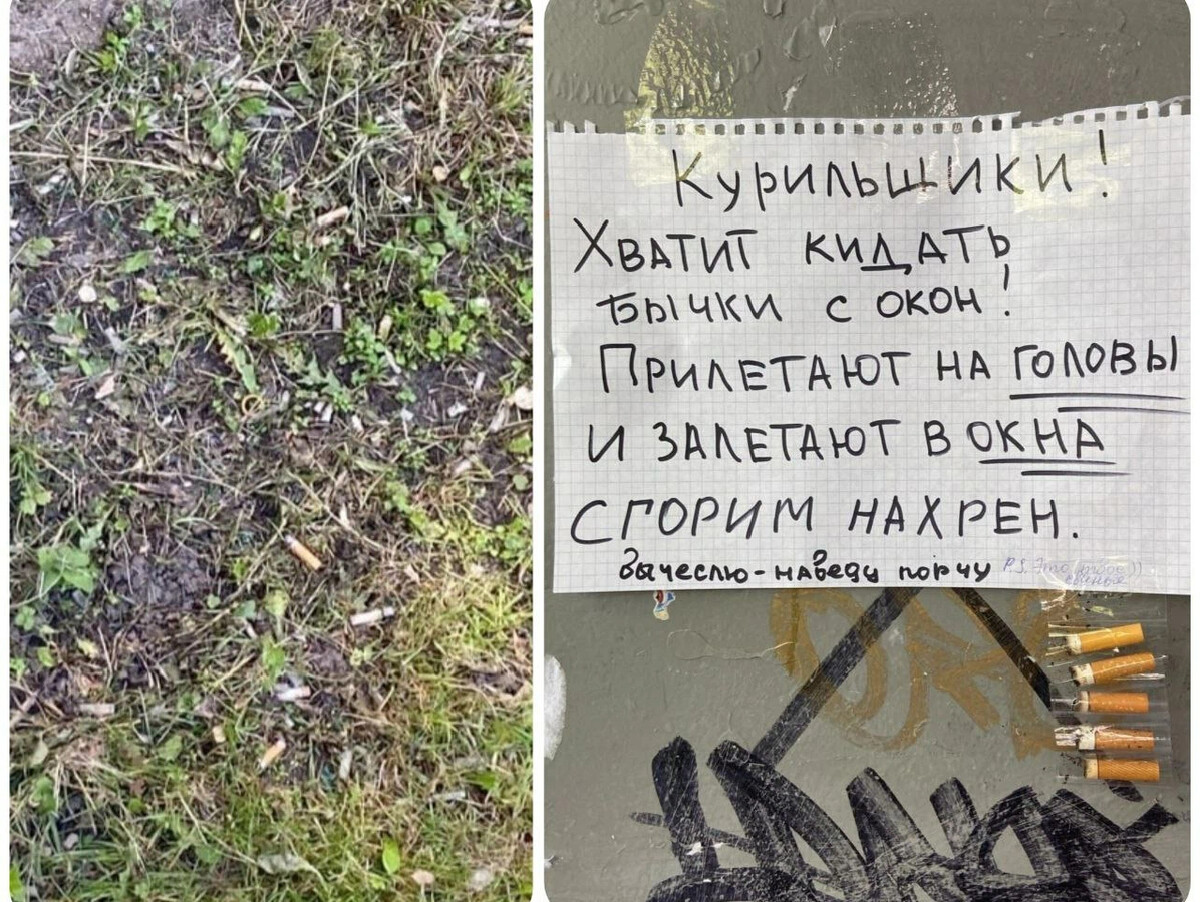 Курильщики!
Хватит кидать
бычки с окон!
Прилетают на головы
и залетают в окна
сгорим нахрен.
Вычеслю-наведу порчу
P.S. Это